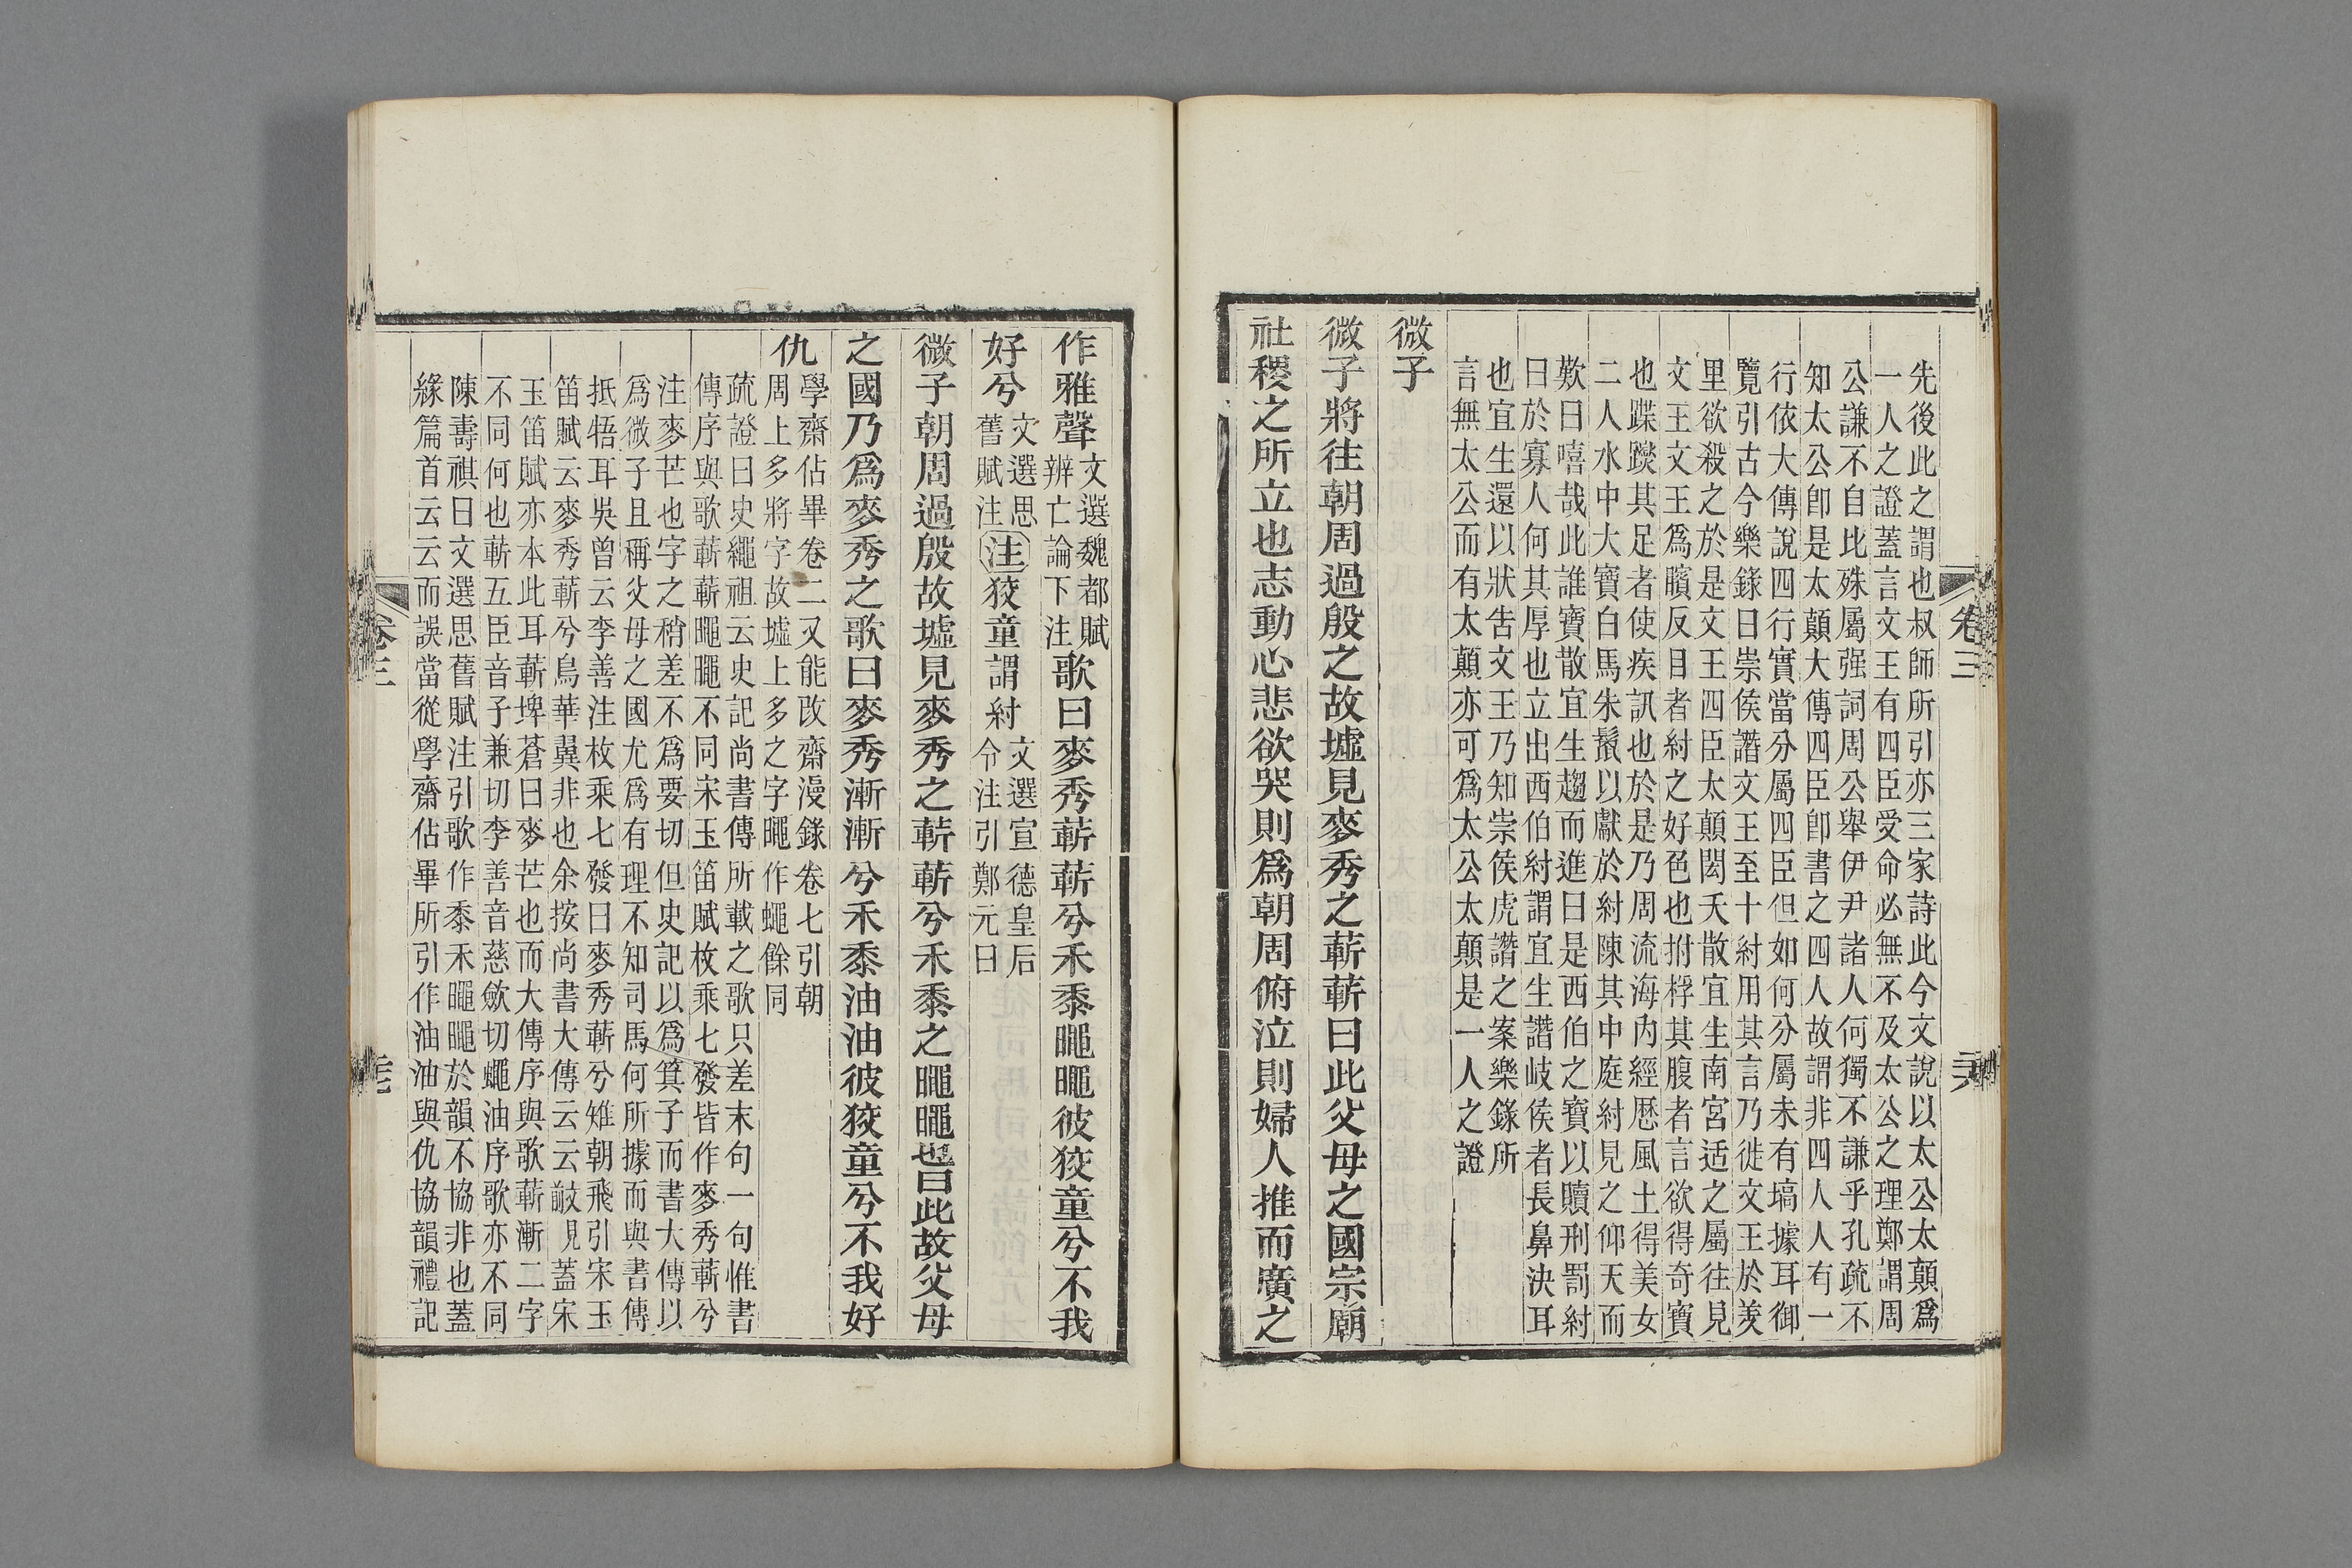 先後此之謂也叔師所引亦三家詩此今文說以太公太顛爲
一人之證蓋言文王有四臣受命必無不及太公之理鄭謂周
公謙不自比殊屬强詞周公舉伊尹諸人何獨不謙乎孔疏不
知太公卽是太顛大傳四臣卽書之四人故謂非四人人有一
行依大傳說四行實當分屬四臣但如何分屬未有塙據耳御
覽引古今樂錄曰崇侯譖文王至十紂用其言乃徙文王於羑
里欲殺之於是文王四臣太顛閎夭散宜生南宮适之屬往見
文王文王爲矉反目者紂之好色也拊桴其腹者言欲得奇寶
也蹀躞其足者使疾訊也於是乃周流海內經歷風土得美女
二人水中大寶白馬朱鬣以獻於紂陳其中庭紂見之仰天而
歎曰嘻哉此誰寶散宜生趨而進曰是西伯之寶以贖刑罰紂
曰於寡人何其厚也立出西伯紂謂宜生譖岐侯者長鼻決耳
也宜生還以狀告文王乃知崇侯虎譖之案樂錄所
言無太公而有太顛亦可爲太公太顛是一人之證
微子
微子將往朝周過殷之故墟見麥秀之蔪蔪曰此父母之國宗廟
社稷之所立也志動心悲欲哭則爲朝周俯泣則婦人推而廣之
卷三
卷三
作雅聲
文選魏都賦
辨亡論下注
歌曰麥秀蔪蔪兮禾黍䵷䵷彼狡童兮不我
好兮
文選思
舊賦注
注狡童謂紂
文選宣德皇后
令注引鄭元曰
微子朝周過殷故墟見麥秀之蔪蔪兮禾黍之䵷䵷也曰此故父母
之國乃爲麥秀之歌曰麥秀漸漸兮禾黍油油彼狡童兮不我好
仇
學齋佔畢卷二又能改齋漫錄卷七引朝
周上多將字故墟上多之字䵷作蠅餘同
疏證曰史繩祖云史記尚書傳所載之歌只差末句一句惟書
傳序與歌蔪蔪䵷䵷不同宋玉笛賦枚乘七發皆作麥秀蔪兮
注麥芒也字之稍差不爲要切但史記以爲箕子而書大傳以
爲微子且稱父母之國尤爲有理不知司馬何所據而與書傳
抵牾耳吳曾云李善注枚乘七發曰麥秀蔪兮雉朝飛引宋玉
笛賦云麥秀蔪兮鳥華翼非也余按尚書大傳云云㪣見蓋宋
玉笛賦亦本此耳蔪埤蒼曰麥芒也而大傳序與歌蔪漸二字
不同何也蔪五臣音子兼切李善音慈斂切蠅油序歌亦不同
陳壽祺曰文選思舊賦注引歌作黍禾䵷䵷於韻不協非也蓋
緣篇首云云而誤當從學齋佔畢所引作油油與仇協韻禮記